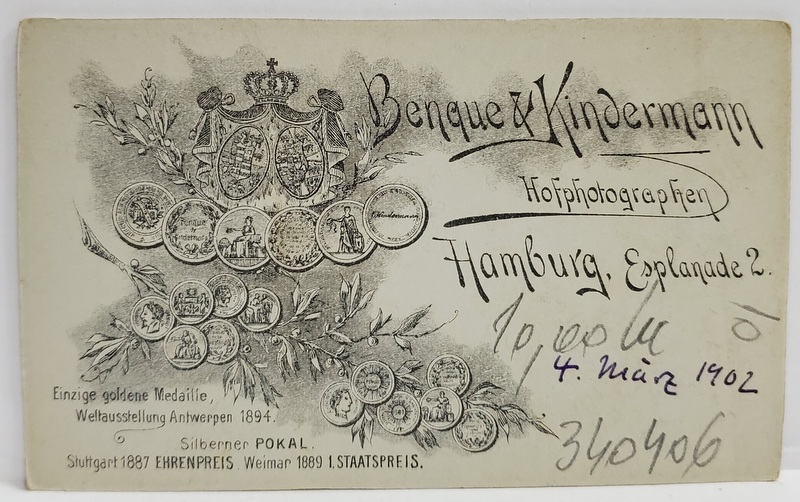 Benque & Kindermann
Hofphotographen
Hamburg, Esplanade 2.
Benque & Kindermann
Kindermann
10,00 M
4. März 1902
Einzige goldene Medaille,
Weltausstellung Antwerpen 1894.
Silberner POKAL.
Stuttgart 1887 EHRENPREIS. Weimar 1889 I. STAATSPREIS.
340406